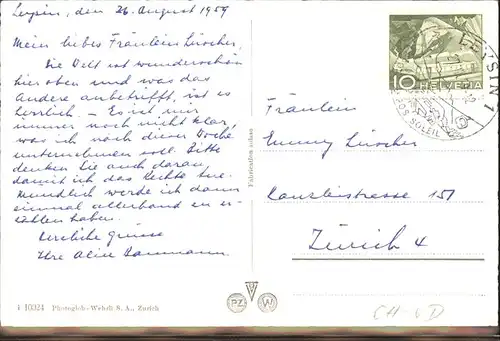 Leysin, den 26. August 1959
Mein liebes Fräulein Lüscher,
Die Welt ist wunderschön
hier oben und was das
Andere anbetrifft, ist es
herrlich. – Es ist mir
immer noch nicht klar,
was ich nach dieser Woche
unternehmen soll. Bitte
denken Sie auch daran,
damit ich das Rechte tue.
Mündlich werde ich dann
einmal allerhand zu er-
zählen haben.
Herzliche Grüsse
Ihre Alice
10324 Photoglob-Wehrli S. A., Zürich
10 HELVETIA
LEYSIN 1
SOLEIL
Fräulein
Emmy Lüscher
Kanzleistrasse 151
Zürich 4
PZ
W
CH-6D